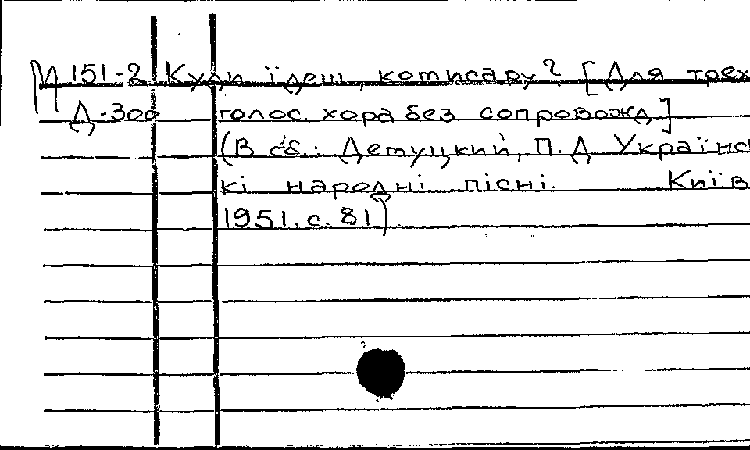 М 151-2 Куди їдеш, комисару? [Для трех
Д-300 голос. хора без сопровожд.]
(В сб.: Демуцкий, П. Д. Українсь
кі народні пісні. Київ
1951. с. 81)